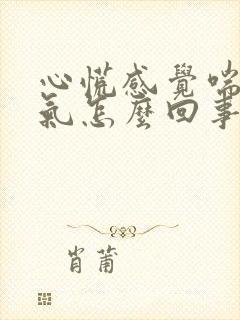 心慌感覺喘
氣怎麼回事
肖莆